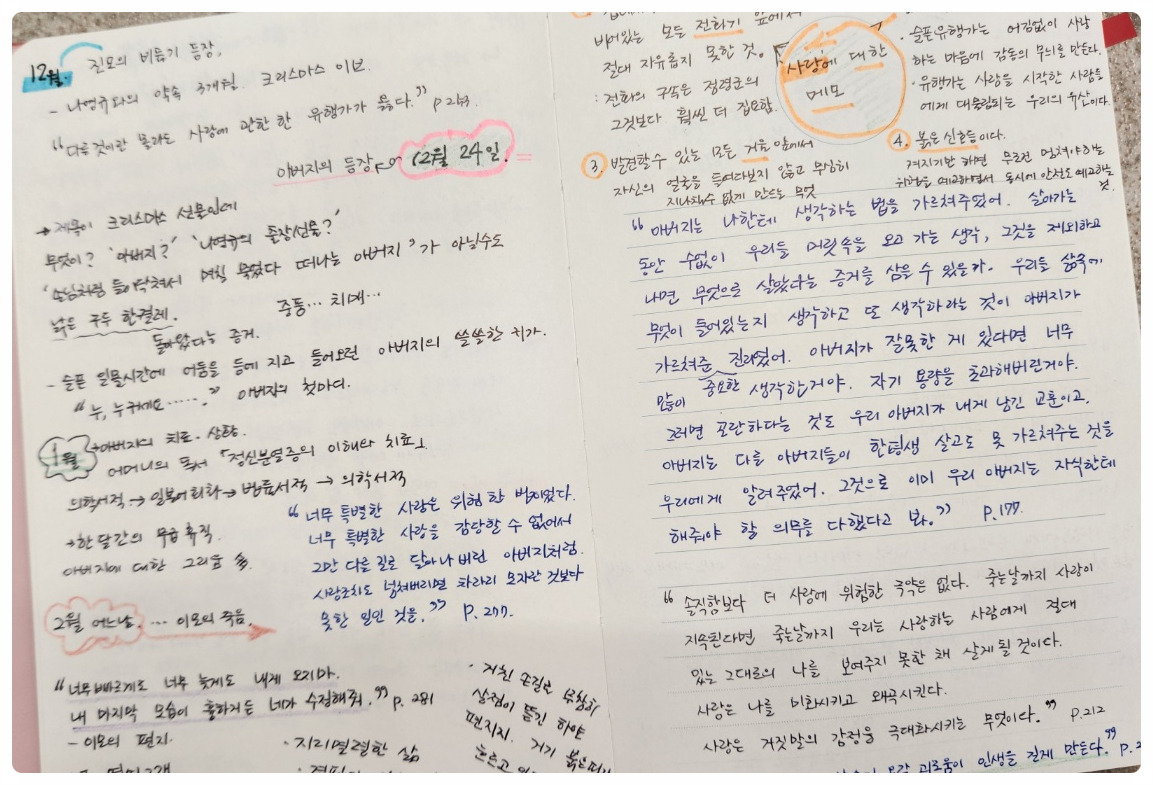 12월. 진모의 비듬기 등장,
- 나영규와의 약속 3개월. 크리스마스 이브.
"다른 것이란 몰라도 사랑에 관한 한 유행가가 옳다." p 243.
아버지의 등장 12월 24일.
→ 제목이 크리스마스 선물인데
무엇이? '아버지?' '나영규의 돌장선물?'
'손님처럼 들이닥쳐서 며칠 묵었다 떠나는 아버지'가 아닐수도
낡은 구두 한결레. 중풍… 치매…
돌아왔다는 증거.
- 슬픈 일몰시간에 어둠을 등에 지고 들어오던 아버지의 쓸쓸한 귀가.
"누, 누구세요……." 아버지의 첫마디.
1월 → 아버지의 치료. 상황.
어머니의 독서 「정신분열증의 이해와 치료」
의학서적 → 일본어회화 → 법률서적 → 의학서적
→ 한달간의 무급 휴직.
아버지에 대한 그리움 多.
"너무 특별한 사랑은 위험한 법이었다.
너무 특별한 사랑을 감당할 수 없어서
그만 다른 길로 달아나버린 아버지처럼.
사랑조차도 넘쳐버리면 차라리 모자란 것보다
못한 일인 것을." P. 277.
2월 어느날. … 이모의 죽음.
"너무 빠르게도 너무 늦게도 내게 오지마.
내 마지막 모습이 흉하거든 네가 수정해줘." p. 281
- 이모의 편지.
· 지리멸렬한 삶
· 거친 손길로 무참히
살점이 뜯긴 하얀
편지지. 거기 붉은
흐르고
비어있는 모든 전화기 앞에서
절대 자유롭지 못한 것.
: 전화의 구속은 점령군의
그것보다 훨씬 더 집요함.
사랑에 대한
메모
· 슬픈유행가는 어김없이 사랑
하는 마음에 감동의 무늬를 만든다.
· 유행가는 사랑을 시작한 사람들
에게 대물림되는 우리의 유산이다.
3. 발견할 수 있는 모든 거울 앞에서
자신의 얼굴을 들여다보지 않고 무심히
지나칠수 없게 만드는 무엇
4. 붉은 신호등이다.
켜지기만 하면 무조건 멈춰야하는
위험을 예고하면서 동시에 안전도 예고하는
것.
"아버지는 나한테 생각하는 법을 가르쳐주었어. 살아가는
동안 수없이 우리들 머릿속을 오고 가는 생각, 그것을 제외하고
나면 무엇으로 살았다는 증거를 삼을 수 있을까. 우리들 삶속에
무엇이 들어있는지 생각하고 또 생각하라는 것이 아버지가
가르쳐준 진리였어. 아버지가 잘못한 게 있다면 너무
많이 중요한 생각한거야. 자기 용량을 초과해버린거야.
그러면 곤란하다는 것도 우리 아버지가 내게 남긴 교훈이고.
아버지는 다른 아버지들이 한평생 살고도 못 가르쳐주는 것을
우리에게 알려주었어. 그것으로 이미 우리 아버지는 자식한테
해줘야 할 의무를 다했다고 봐." P. 177.
"솔직함보다 더 사랑에 위험한 극약은 없다. 죽는날까지 사랑이
지속된다면 죽는날까지 우리는 사랑하는 사람에게 절대
있는 그대로의 나를 보여주지 못한 채 살게 될 것이다.
사랑은 나를 미화시키고 왜곡시킨다.
사랑은 거짓말의 감정을 극대화시키는 무엇이다." p.212
괴로움이 인생을 길게 만든다." p. 2